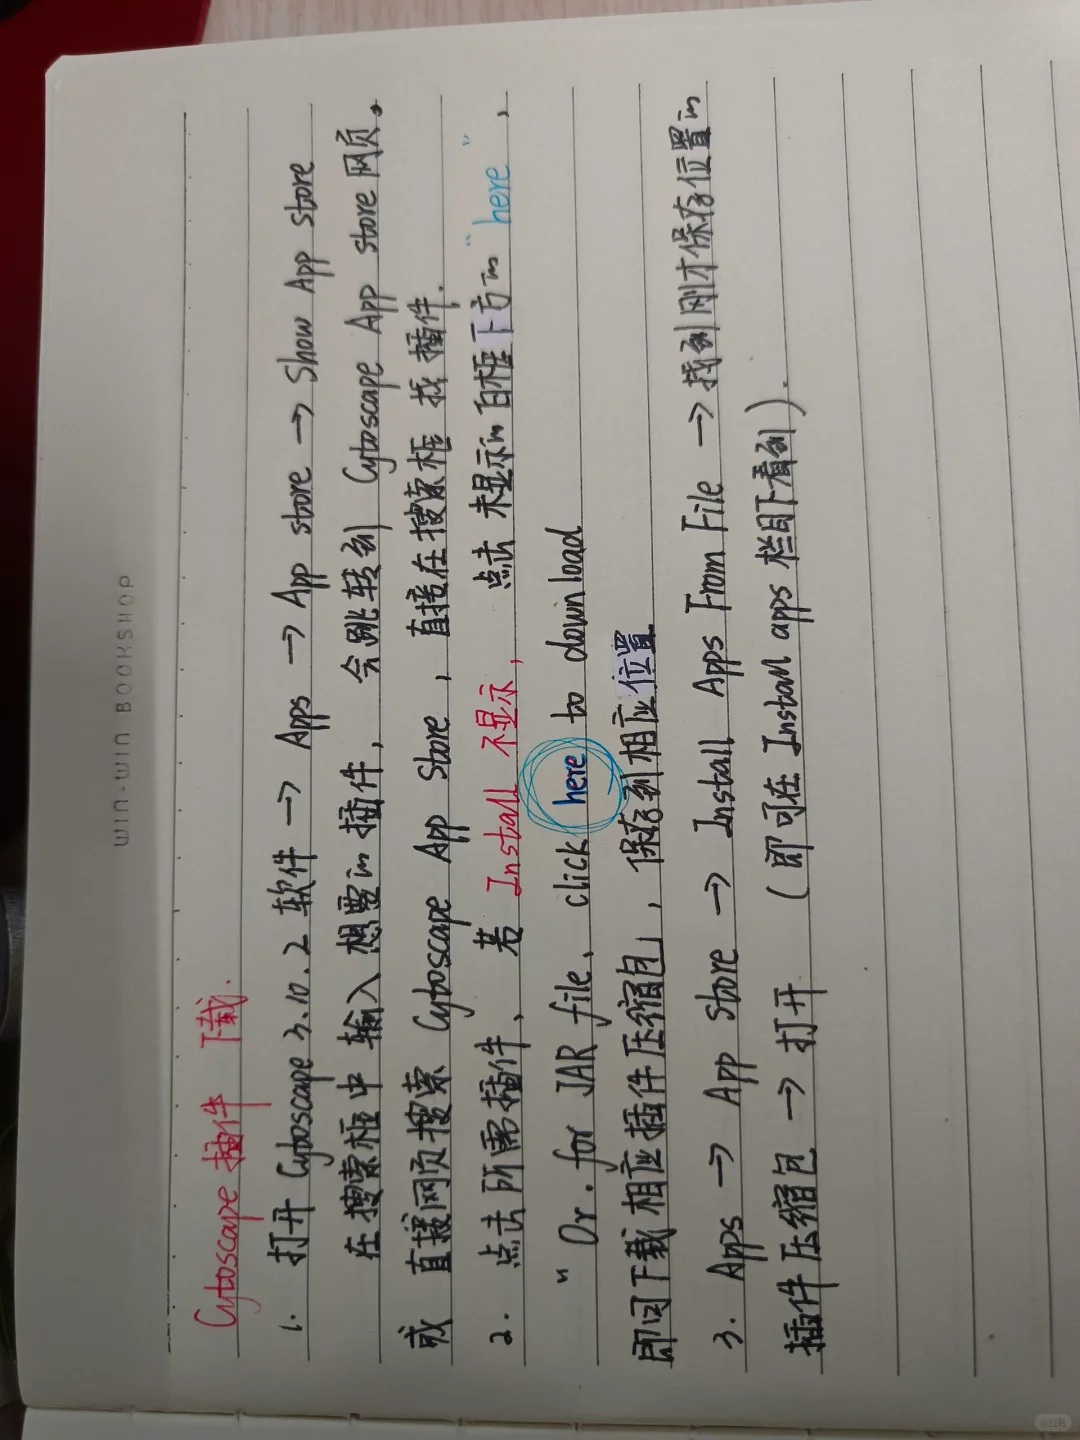 WIN-WIN BOOKSHOP
Cytoscape 插件 下载.
1. 打开 Cytoscape 3.10.2 软件 → Apps → App store → Show App store
在搜索框中 输入想要的插件, 会跳转到 Cytoscape App store 网页。
或 直接网页搜索 Cytoscape App Store, 直接在搜索框 找 插件.
2. 点击所需插件、若 Install 不显示, 点击 未显示的白框下方的 "here",
"Or. for JAR file、click here to download
即可下载相应插件压缩包」, 保存到相应位置
3. Apps → App Store → Install Apps From File → 找到刚才保存位置的
插件压缩包 → 打开 (即可在 Install apps 栏目下看到).
小红书